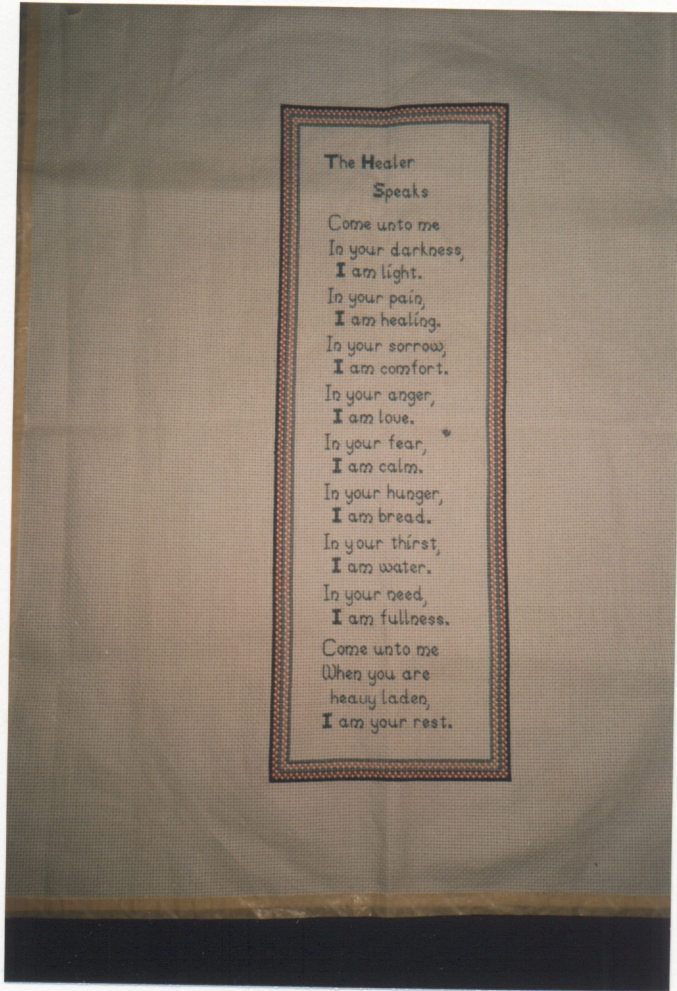 The Healer
Speaks
Come unto me
In your darkness,
I am light.
In your pain,
I am healing.
In your sorrow,
I am comfort.
In your anger,
I am love.
In your fear,
I am calm.
In your hunger,
I am bread.
In your thirst,
I am water.
In your need,
I am fullness.
Come unto me
When you are
heavy laden,
I am your rest.